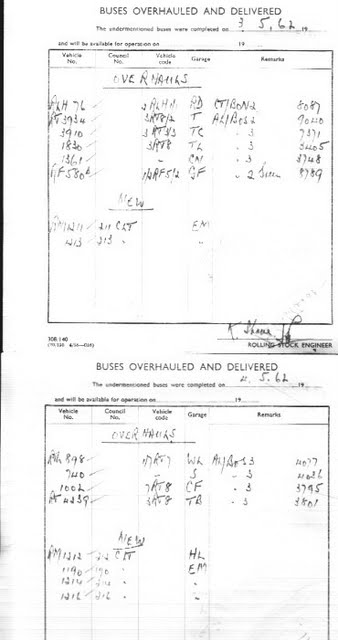 BUSES OVERHAULED AND DELIVERED
The undermentioned buses were completed on 3. 5. 62 19
and will be available for operation on 19
Vehicle No. Council No. Vehicle code Garage Remarks
OVERHAULS
RLH 76 2RLH1 RD 8087
RT 3934 3RT8/2 T 9040
3910 3RT3/3 TC - 3 7371
1830 3RT8 TL - 3 3405
1361 " CN - 3 3748
1/2RF5/2 GF - 2 8789
NEW
RM 1211 211 CLT EM
1213 213 " "
ROLLING STOCK ENGINEER
BUSES OVERHAULED AND DELIVERED
The undermentioned buses were completed on 4. 5. 62 19
and will be available for operation on 19
Vehicle No. Council No. Vehicle code Garage Remarks
OVERHAULS
898 WL 4077
740 S - 3 4036
1002 7RT8 CF - 3 3795
RT 4239 3RT8 TB - 3 3801
NEW
RM 1212 212 CLT HL
1190 190 " EM
1214 214 " "
1216 216 "